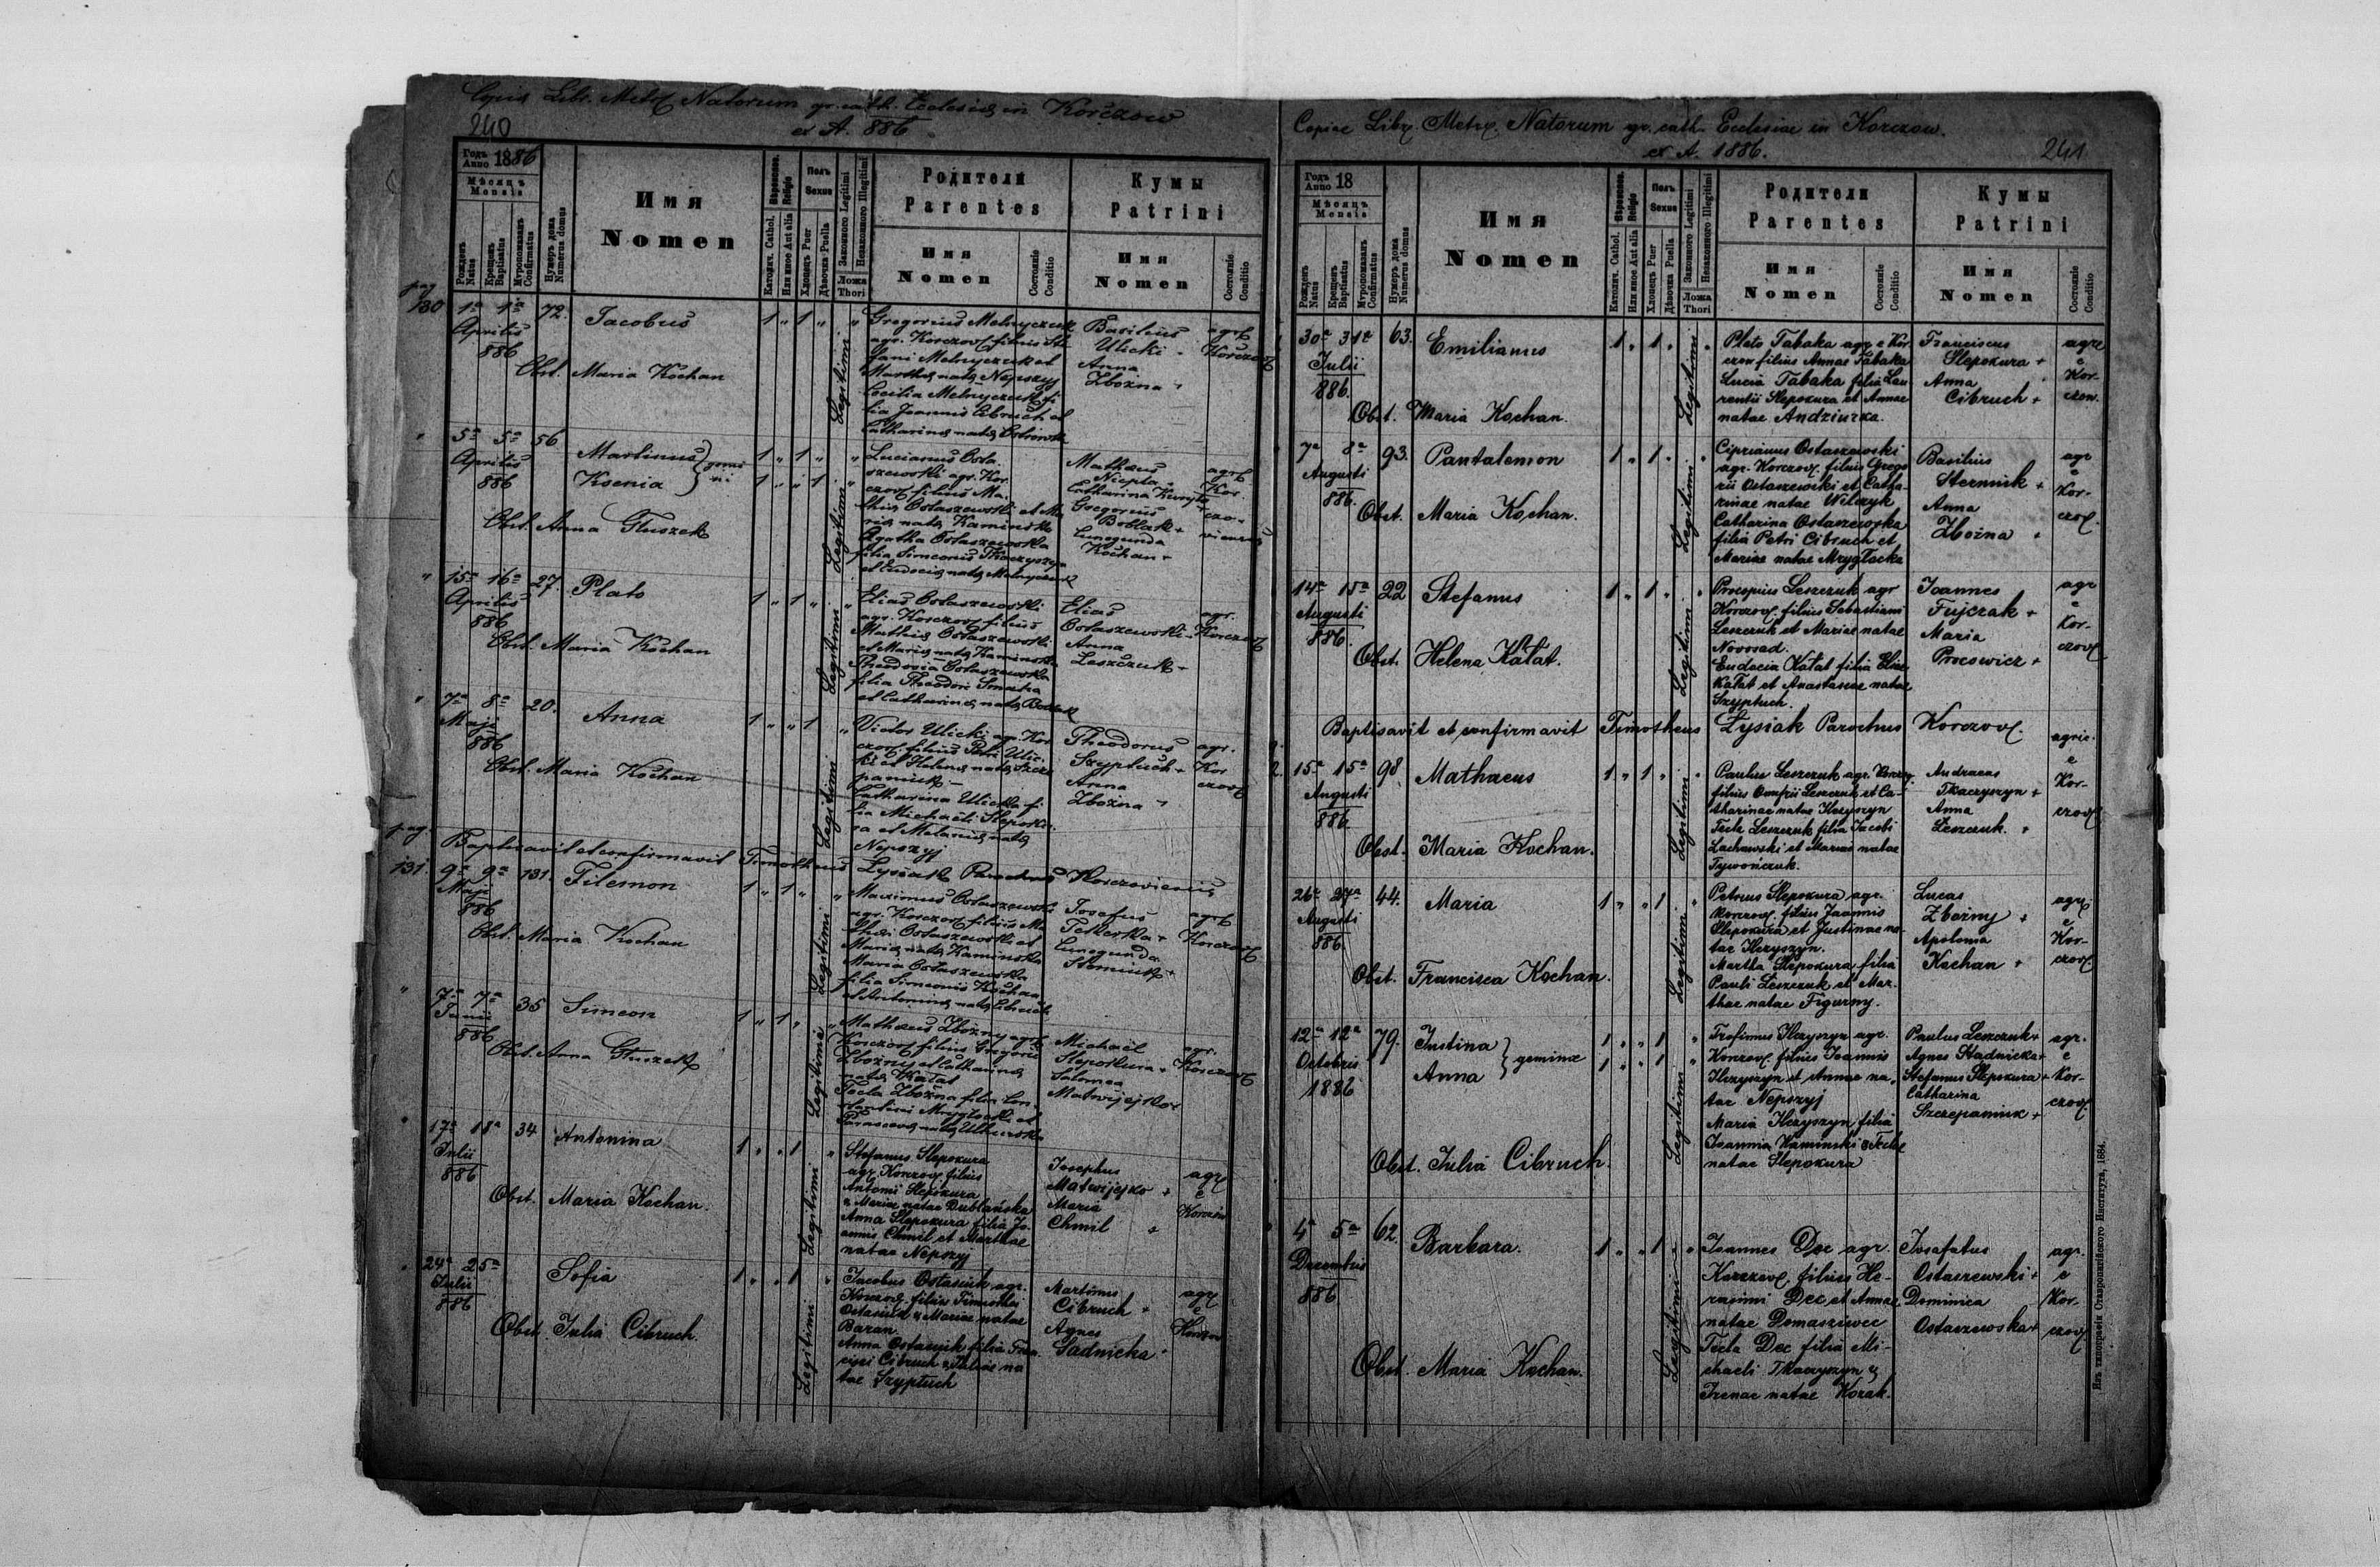 Copia Libr. Metr. Natorum gr. cath. Ecclesiae in Korczow
240
ex A. 886
Годъ Anno 1886
Мѣсяцъ Mensis
Рожденъ Natus
Крещенъ Baptisatus
Мѵропомазанъ Confirmatus
Нумеръ дома Numerus domus
Имя
Nomen
Вѣроиспов. Religio
Католич. Cathol.
Или иное Aut alia
Полъ Sexus
Хлопецъ Puer
Дѣвочка Puella
Законного Legitimi
Незаконного Illegitimi
Ложа Thori
Родители
Parentes
Имя
Nomen
Состояніе Conditio
Кумы
Patrini
Имя
Nomen
Состояніе Conditio
pag
130
1a 1a 72. Jacobus 1 " 1 " "
Aprilis
886
Obst. Maria Kochan
Legitimi
Gregorius Melnyczuk
agr. Korczov. filius Ste
fani Melnyczuk et
Marthae natae Nepszyj
Cecilia Melnyczuk fi
lia Joannis Cibruch et
Catharinae natae Ostrowska
Basilius
Ulicki
Anna
Zbożna +
agr
Korczov
" 5a 5a 56 Martinus } gemi
Aprilis Ksenia } ni
886
1 " 1 " "
1 " " 1 "
Obst. Anna Głuszek
Legitimi
Lucianus Osta
szewski agr. Kor.
czov. filius Ma.
thiae Ostaszewski et Ma
riae natae Kaminska
Agatha Ostaszewska
filia Simeonis Tkaczyszyn
et Eudociae natae Melnyczuk
Mathaeus
Niepla
Catharina
Gregorius
Boblak +
Cunegunda
Kochan +
agr
Kor.
czo-
viensis
" 15a 16a 27. Plato 1 " 1 " "
Aprilis
886
Obst. Maria Kochan
Legitimi
Elias Ostaszewski
agr. Korczov. filius
Mathiae Ostaszewski
et Mariae natae Kaminska
Theodosia Ostaszewska
filia Theodori
et Catharinae natae
Elias
Ostaszewski
Anna
Leszczuk +
agr.
Korczov
" 7a 8a 20. Anna 1 " " 1 "
Maji
886
Obst. Maria Kochan
Legitimi
Victor Ulicki agr. Kor
czov. filius Petri Ulic.
ki et Helenae natae Szcze
paniuk
Catharina Ulicka fi
lia Michaeli Slepoku.
ra et Melaniae natae
Nepszyj
Theodorus
Szyptuch +
Anna
Zbożna +
agr.
Kor
czov
pag.
Baptisavit et confirmavit Timotheus Łysiak Parochus Korczoviensis
131. 9a 9a 131. Filemon 1 " 1 " "
Maji
886
Obst. Maria Kochan
Legitimi
Maximus Ostaszewski
agr. Korczov. filius Ma
thiae Ostaszewski et
Mariae natae Kaminska
Maria Ostaszewska
filia Simeonis Kochan
et Antoninae natae Cibruch
Josefus
Cunegunda
agr
Korczov
" 7a 7a 35 Simeon 1 " 1 " "
Junii
886
Obst. Anna Głuszek
Legitimi
Mathaeus Zbożny agr.
Korczov. filius Gregorii
Zbożny et Catharinae
natae Kałat
Tecla Zbożna filia Con
stantini Mrygłocki et
Parascevae natae
Michaël
Slepokura +
Salomea
Matwijejko +
agr.
Korczov
" 17a 18a 34 Antonina 1 " " 1 "
Julii
886
Obst. Maria Kochan.
Legitimi
Stefanus Slepokura
agr. Korczov. filius
Antonii Slepokura
& Mariae natae Dublańska
Anna Slepokura filia Jo-
annis Chmil et Marthae
natae Nepszyj
Josephus
Matwijejko +
Maria
Chmil +
agr
e
Korczów
" 24a 25a Sofia 1 " " 1 "
Julii
886
Obst. Julia Cibruch.
Legitimi
Jacobus Ostasiuk agr.
Korczov. filius Timothei
Ostasiuk & Mariae natae
Baran
Anna Ostasiuk filia
Cibruch & Juliae na
tae Szyptuch
Martinus
Cibruch +
Agnes
Sadnicka +
agr
e
Korczov
Copiae Libr. Metr. Natorum gr. cath. Ecclesiae in Korczow.
ex A. 1886.
241
Годъ Anno 18
Мѣсяцъ Mensis
Рожденъ Natus
Крещенъ Baptisatus
Мѵропомазанъ Confirmatus
Нумеръ дома Numerus domus
Имя
Nomen
Вѣроиспов. Religio
Католич. Cathol.
Или иное Aut alia
Полъ Sexus
Хлопецъ Puer
Дѣвочка Puella
Законного Legitimi
Незаконного Illegitimi
Ложа Thori
Родители
Parentes
Имя
Nomen
Состояніе Conditio
Кумы
Patrini
Имя
Nomen
Состояніе Conditio
30a 31a 63. Emilianus 1 " 1 " "
Julii
886.
Obst. Maria Kochan.
Legitimi
Plato Tabaka agr. e Kor
czow filius Annae Tabaka
Lucia Tabaka filia Lau
rentii Slepokura et Annae
natae Andziurka.
Franciscus
Slepokura +
Anna
Cibruch +
agr
e
Kor-
czow.
7a 8a 93. Pantalemon 1 " 1 " "
Augusti
886.
Obst. Maria Kochan.
Legitimi
Ciprianus Ostaszewski
agr. Korczov. filius Grego
rii Ostaszewski et Catha-
rinae natae Wilczyk
Catharina Ostaszewska
filia Petri Cibruch et
Mariae natae Mrygłocka
Basilius
Sterniuk +
Anna
Zbożna +
agr
e
Kor-
czov.
14a 15a 22 Stefanus 1 " 1 " "
Augusti
886.
Obst. Helena Kałat.
Legitimi
Procopius Leszczuk agr
Korczov. filius Sebastiani
Leszczuk et Mariae natae
Novosad.
Eudocia Kałat filia Eliae
Kałat et Anastasiae natae
Szyptuch.
Joannes
Fujczak +
Maria
Procowicz +
agr
e
Kor-
czov
Baptisavit et confirmavit Timotheus Łysiak Parochus Korczov.
15a 15a 98. Mathaeus 1 " 1 " "
Augusti
886.
Obst. Maria Kochan.
Legitimi
Paulus Leszczuk agr. Korczov.
filius Onufrii Leszczuk et Ca-
tharinae natae Hryszyn
Tecla Leszczuk filia Jacobi
Lachowski et Mariae natae
Tywończuk.
Andraeas
Tkaczyszyn +
Anna
Leszczuk. +
agric.
e
Kor-
czov
26a 27a 44. Maria 1 " " 1 "
Augusti
886.
Obst. Francisca Kochan.
Legitimi
Petrus Slepokura agr.
Korczov. filius Joannis
Slepokura et Justinae na-
tae Hryszyn.
Martha Slepokura filia
Pauli Leszczuk et Mar-
thae natae Figurny.
Lucas
Zbożny +
Apolonia
Kochan +
agr
e
Kor-
czov.
12a 12a 79. Justina } geminae 1 " " 1 "
Octobris Anna } 1 " " 1 "
1886
Obst. Julia Cibruch.
Legitimi
Trofimus Hryszyn agr.
Korczov. filius Joannis
Hryszyn et Annae na-
tae Nepszyj
Maria Hryszyn filia
Joannis Kaminski & Teclae
natae Slepokura
Paulus Leszczuk +
Agnes Sadnicka +
Stefanus Slepokura +
Catharina
Szczepaniuk +
agr.
e
Kor-
czov.
4a 5a 62. Barbara. 1 " " 1 "
Decembris
886
Obst. Maria Kochan.
Legitimi
Joannes Dec agr.
Korczov. filius He-
rasimi Dec et Annae
natae Domasziwec
Tecla Dec filia Mi-
chaeli Tkaczyszyn &
Irenae natae Kozak.
Josafatus
Ostaszewski +
Dominica
Ostaszewska +
agr.
e
Kor-
czov.
Изъ типографіи Ставропигійского Института, 1884.